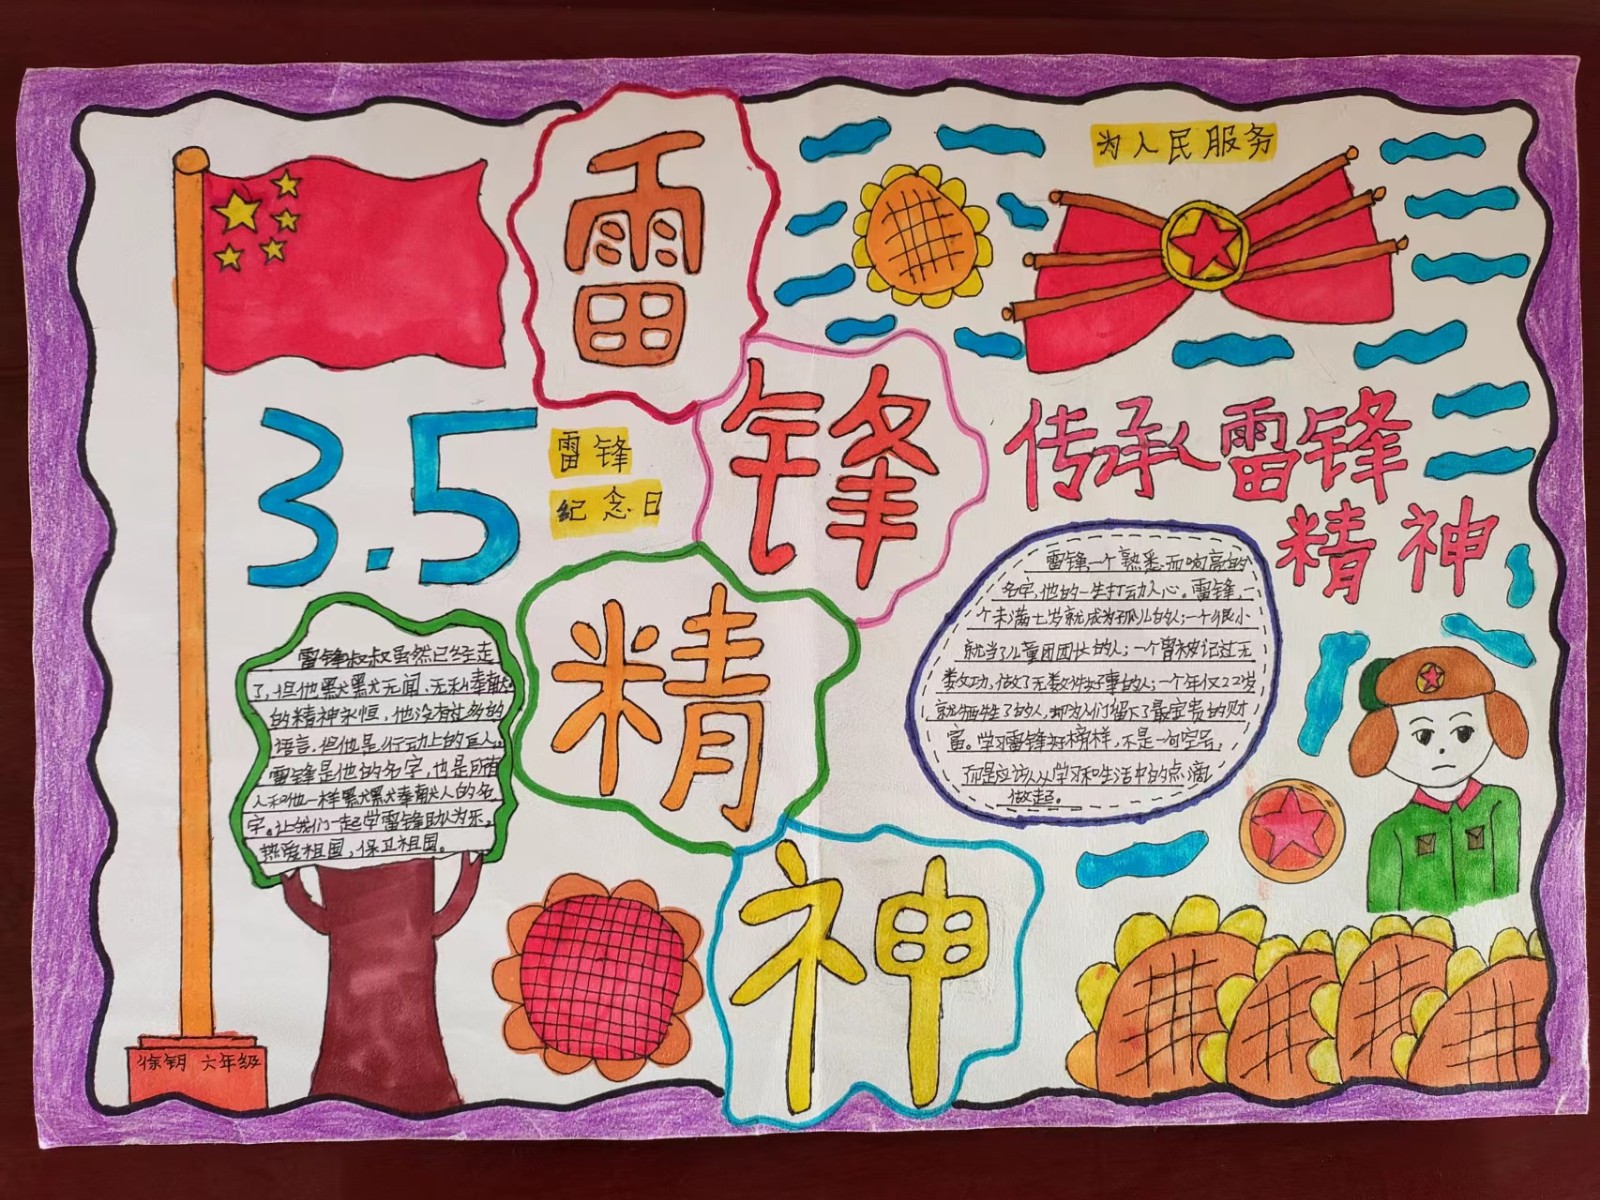 雷
锋
精
神
为人民服务
3.5
雷锋
纪念日
传承雷锋
精神
雷锋叔叔虽然已经走
了,但他默默无闻、无私奉献
的精神永恒,他没有过多的
语言,但他是行动上的巨人。
雷锋是他的名字,也是所有
人和他一样默默奉献人的名
字。让我们一起学雷锋助人为乐,
热爱祖国,保卫祖国。
雷锋,一个熟悉而响亮的
名字,他的一生打动人心。雷锋,一
个未满七岁就成为孤儿的人;一个很小
就当了儿童团团长的人;一个曾被记过无
数次功,做了无数件好事的人;一个年仅22岁
就牺牲了的人,却为人们留下了最宝贵的财
富。学习雷锋好榜样,不是一句空号,
而是应该从学习和生活中的点滴
做起。
徐钥 六年级